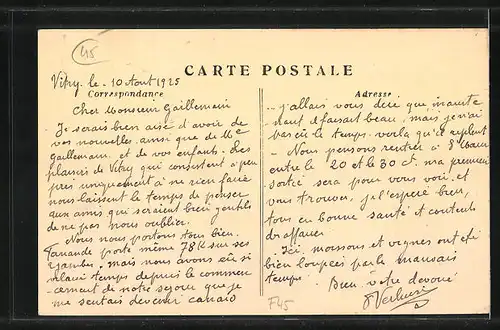 45
Vitry. le. 10 Août 1925
CARTE POSTALE
Correspondance
Adresse
Cher Monsieur Gaillemain
Je serais bien aise d'avoir de
vos nouvelles ainsi que de Me
Gaillemain, et de vos enfants. Les
plaisirs de Vitry qui consistent à peu
près uniquement à ne rien faire
nous laissent le temps de penser
aux amis qui seraient bien gentils
de ne pas nous oublier.
Nous nous portons tous bien.
porte même 78K sur ses
jambes. mais nous avons eu si
mauvais temps depuis le commen-
cement de notre séjour que je
me sentais devenir canard
... j'allais vous dire que
faisait beau, mais je n'ai
pas eu le temps. voila qu'il repleut
- Nous pensons rentrer à
entre le 20 et le 30 ct. ma première
sortie sera pour vous voir, et
vous trouver, je l'espère bien,
tous en bonne santé et contents
d'affaires
Ici, moissons et vignes ont été
bien loupées par le mauvais
temps. Bien votre dévoué
F45